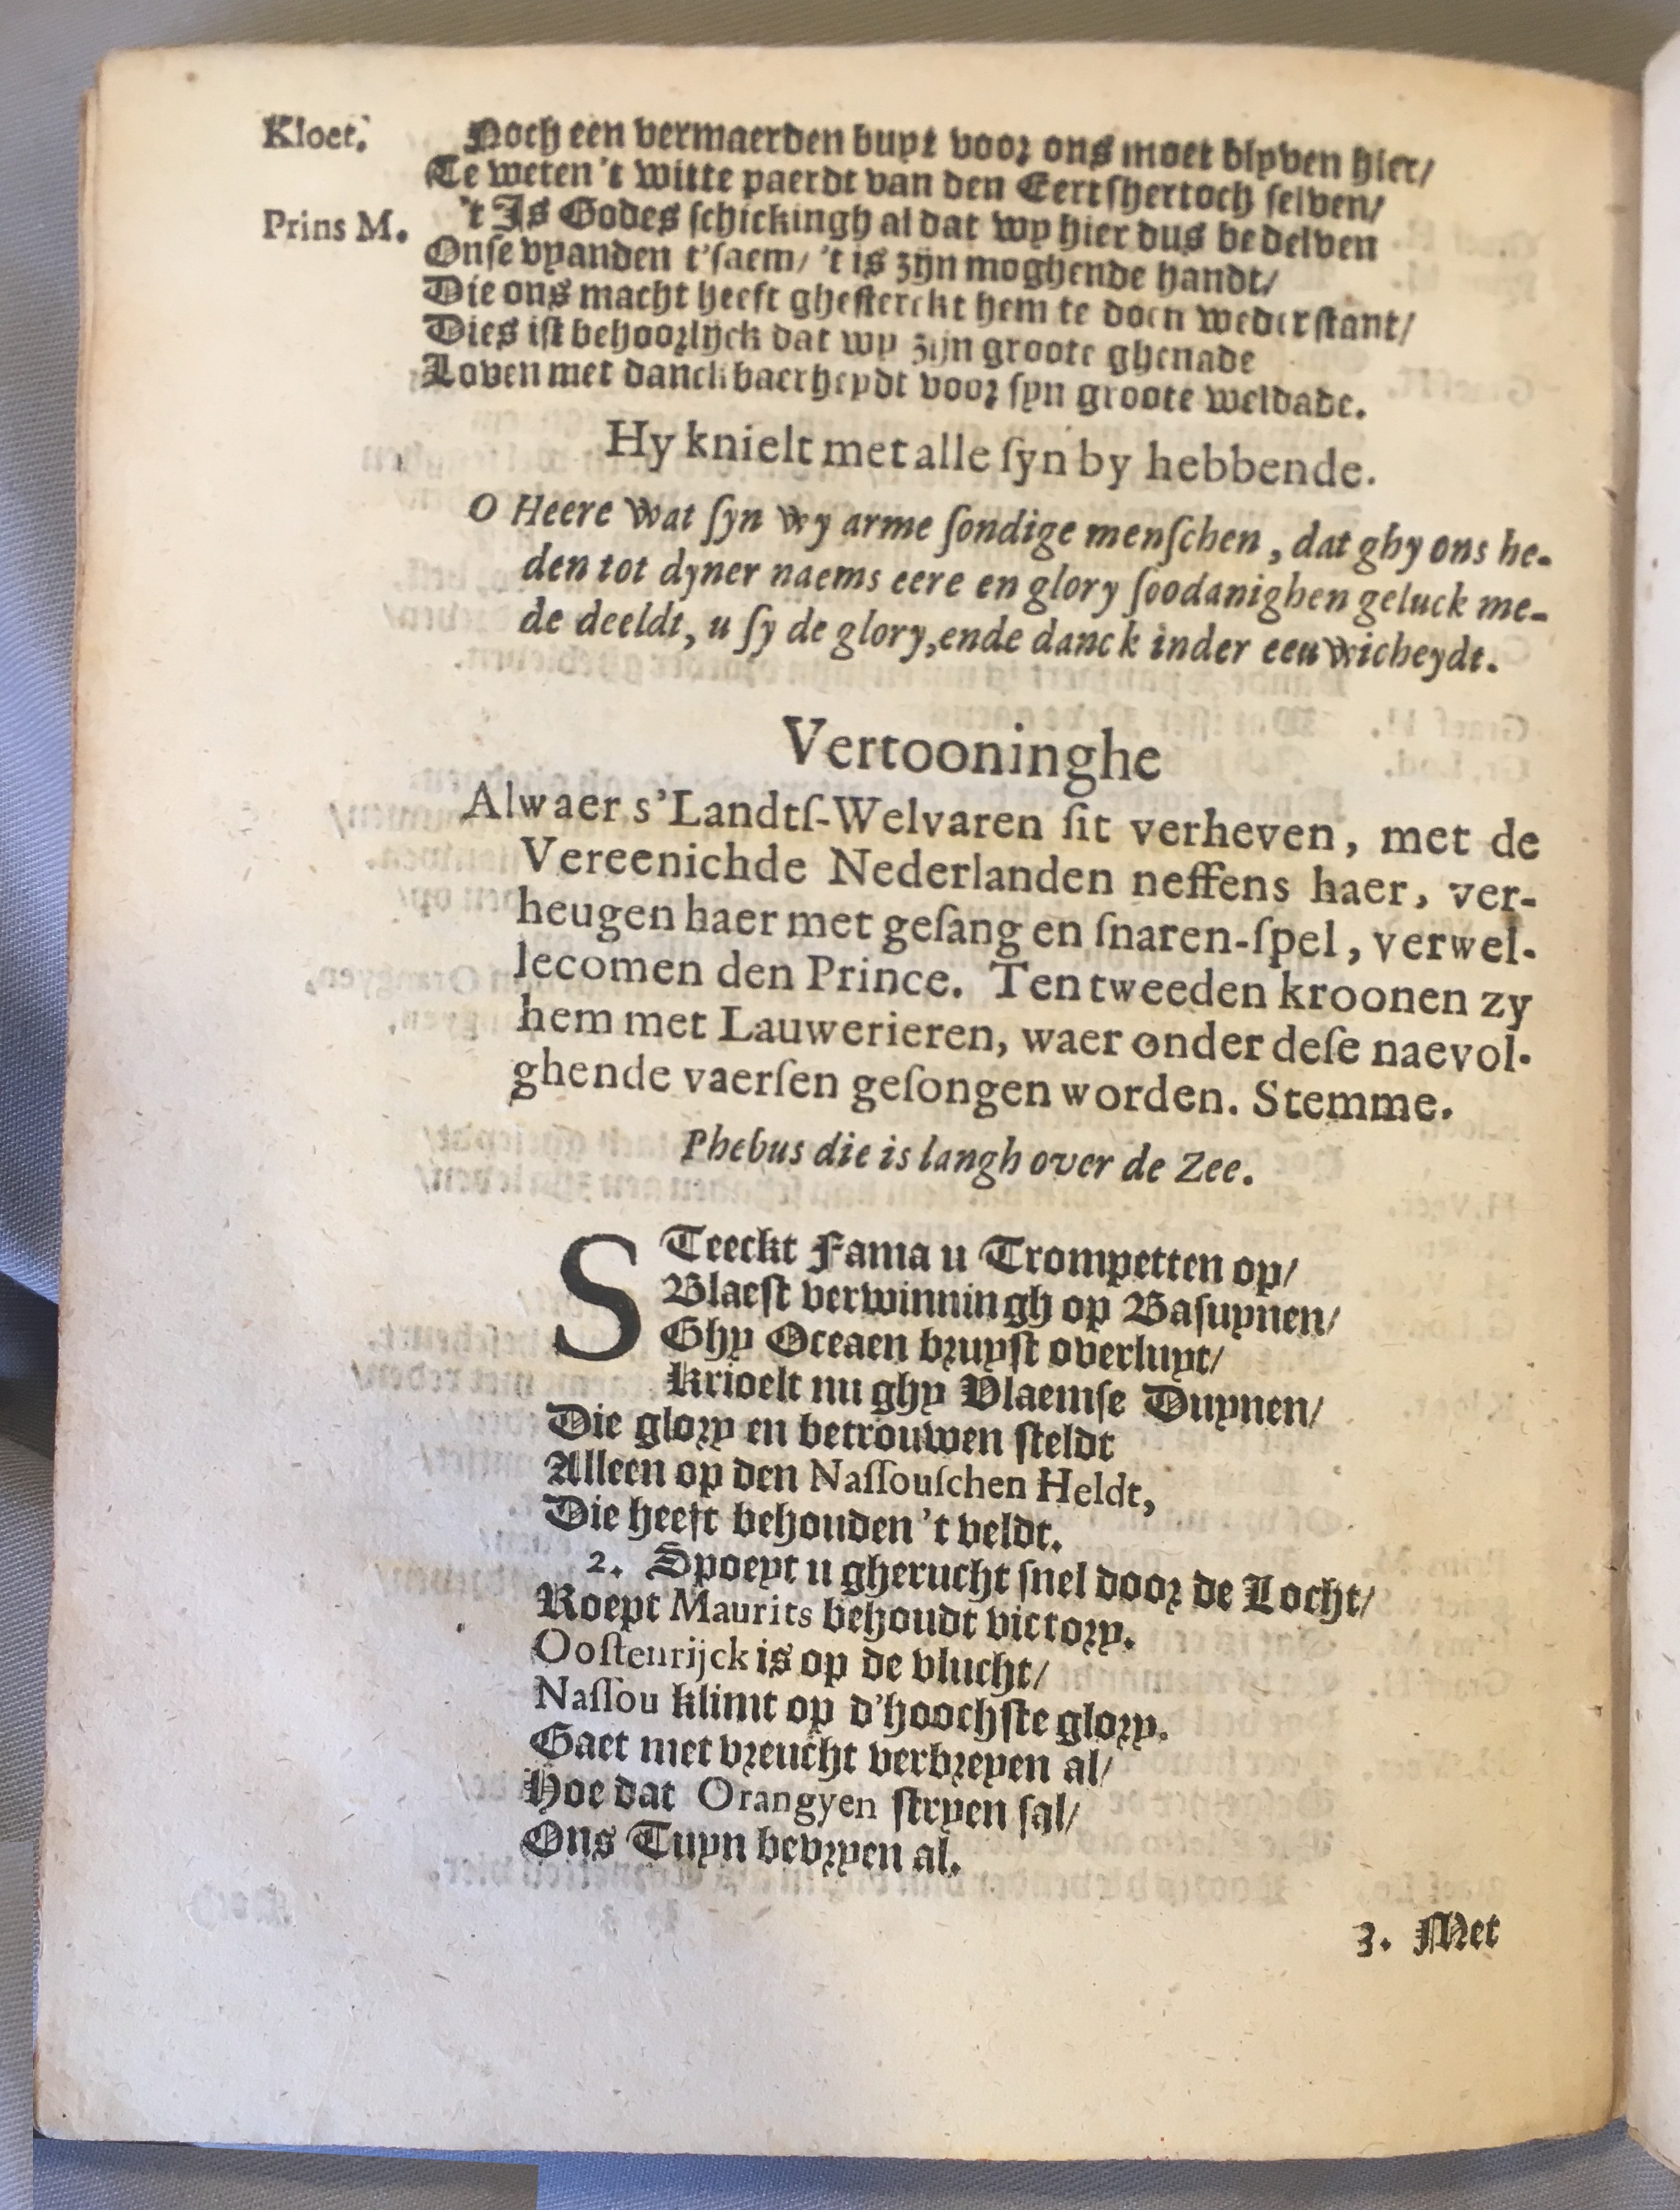 Kloet. Noch een vermaerden buyt voor ons moet blyven hier/
Te weten 't witte paerdt van den Eertshertoch selven/
Prins M. 't Is Godes schickingh al dat wy hier dus bedelven
Onse vyanden t'saem/ 't is zijn moghende handt/
Die ons macht heeft ghesterckt hem te doen wederstant/
Dies ist behoorlijck dat wy zijn groote ghenade
Loven met danckbaerheydt voor syn groote weldade.
Hy knielt met alle ſyn by hebbende.
O Heere wat ſyn wy arme ſondige menſchen, dat ghy ons he-
den tot dyner naems eere en glory ſoodanighen geluck me-
de deeldt, u ſy de glory, ende danck inder eeuwicheydt.
Vertooninghe
Alwaer s'Landtſ-Welvaren ſit verheven, met de
Vereenichde Nederlanden neffens haer, ver-
heugen haer met geſang en ſnaren-ſpel, verwel-
lecomen den Prince. Ten tweeden kroonen zy
hem met Lauwerieren, waer onder deſe naevol-
ghende vaerſen geſongen worden. Stemme.
Phebus die is langh over de Zee.
STeeckt Fama u Trompetten op/
Blaeſt verwinningh op Baſuynen/
Ghy Oceaen bruyſt overluyt/
Krioelt nu ghy Vlaemſe Duynen/
Die glory en betrouwen ſteldt
Alleen op den Naſſouſchen Heldt,
Die heeft behouden 't veldt.
2. Spoeyt u gherucht ſnel door de Locht/
Roept Maurits behoudt victory.
Ooſtenrijck is op de vlucht/
Naſſou klimt op d'hoochſte glory.
Gaet met vreucht verbreyen al/
Hoe dat Orangyen ſtryen ſal/
Ons Tuyn bevryen al.
3. Met